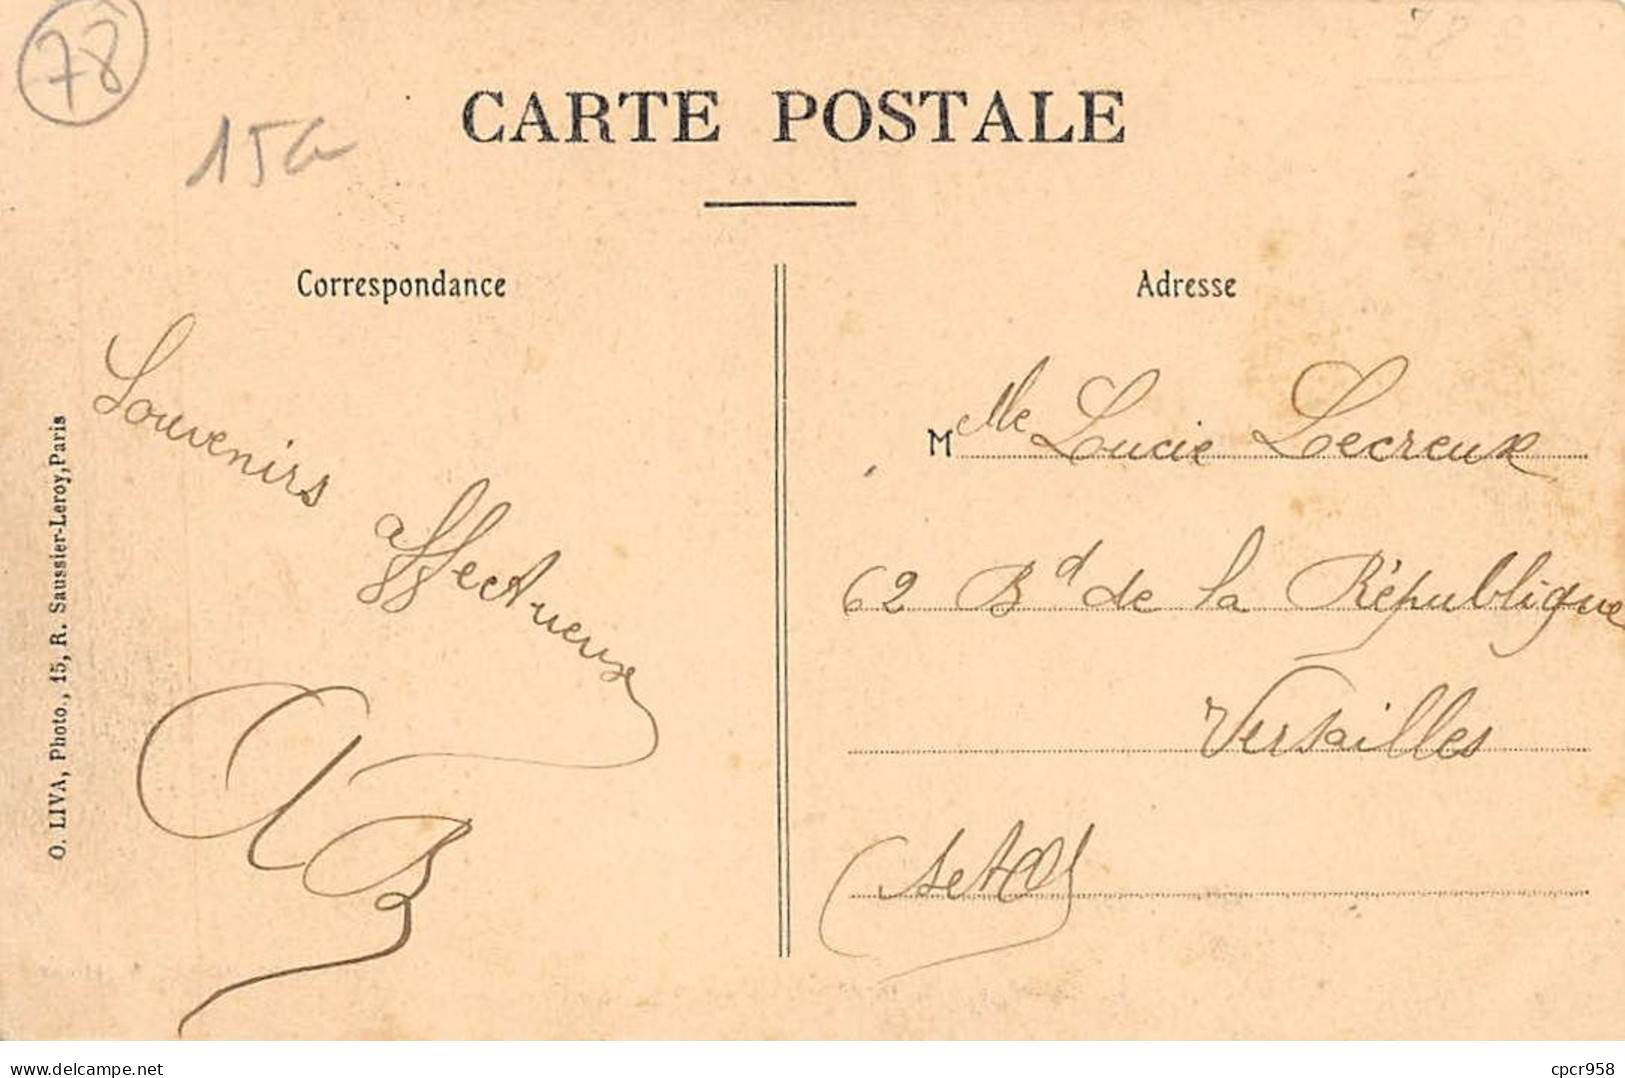 78
15
CARTE POSTALE
Correspondance
Souvenirs
affectueux
AB
O. LIVA, Photo., 15, R. Saussier-Leroy, Paris
Adresse
Melle Lucie Lecreux
62 Bd de la République
Versailles
(SetO)
www.delcampe.net
cpcr958